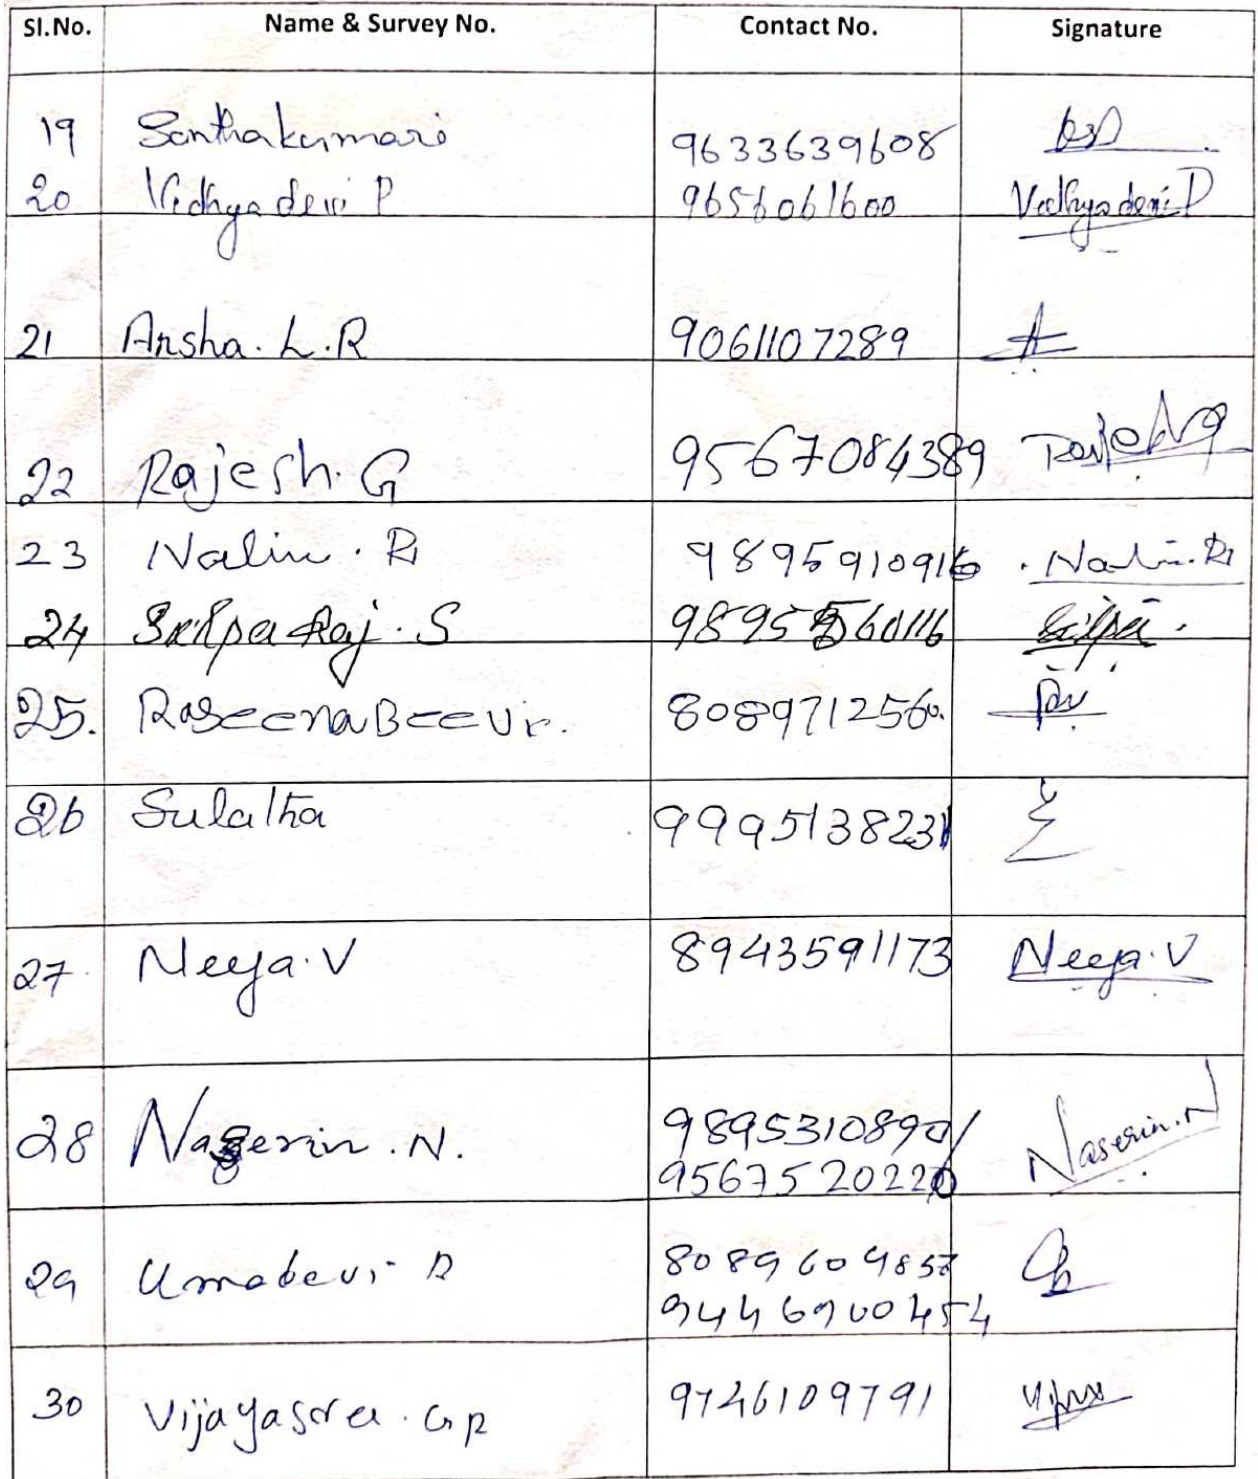 Sl.No. Name & Survey No. Contact No. Signature
19 Santhakumari 9633639608
20 Vidhya devi P 9656061600 Vidhya devi P
21 Arsha. L.R 9061107289
22 Rajesh. G 9567084389
23 Nalin. R 9895910916 Nalin. R
24 Raj. S
25. RaseenaBeevi. 8089712560.
26 Sulatha 9995138231
27. Neeja. V 8943591173 Neeja. V
28 Naserin. N. 9895310890/ Naserin. N
9567520220
29 Umadevi R 8089609857
9446900454
30 Vijayasree. G R 9746109791